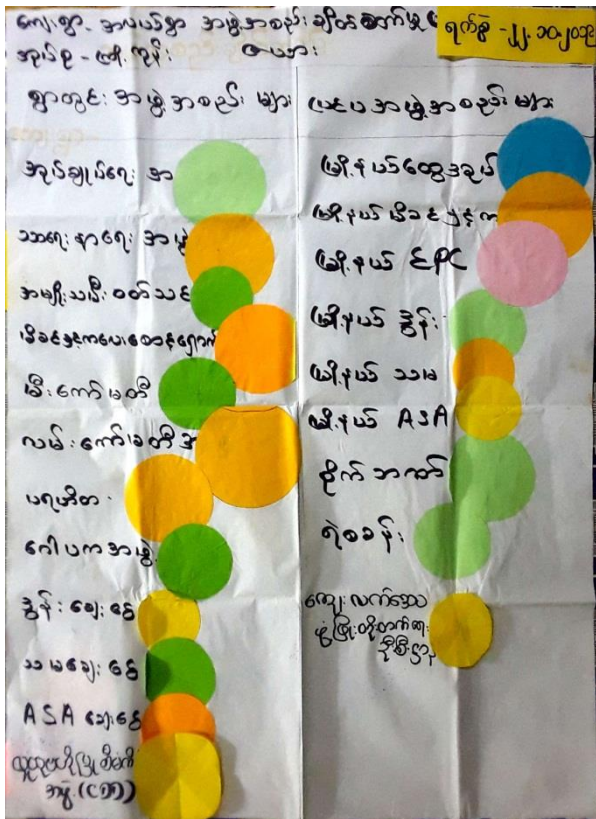 ကျေးရွာ - အလယ်ရွာ အဖွဲ့အစည်းချိတ်ဆက်မှု
ရက်စွဲ - ၂၂.၁၀.၂၀၁၉
အုပ်စု - ကြို့ကုန်း
ရွာတွင်း အဖွဲ့အစည်းများ
ပြင်ပအဖွဲ့အစည်းများ
အုပ်ချုပ်ရေး အ
သာရေးနာရေး အဖွဲ့
အမျိုးသမီး ဝတ်သင်
မိခင်နှင့်ကလေးစောင့်ရှောက်
မီးကော်မတီ
လမ်းကော်မတီအ
ပရဟိတ
ဂေါပကအဖွဲ့
ဒွန်းချေးငွေ
သမချေးငွေ
ASA ချေးငွေ
အဖွဲ့ (CDD)
မြို့နယ်ထွေအုပ်
မြို့နယ်မိခင်နှင့်က
မြို့နယ် EPC
မြို့နယ် ဒွန်း
မြို့နယ် သမ
မြို့နယ် ASA
စိုက်ဘဏ်
ရဲစခန်း
ကျေးလက်ဒေသ
ဖွံ့ဖြိုးတိုးတက်ရေး
ဦးစီးဌာန